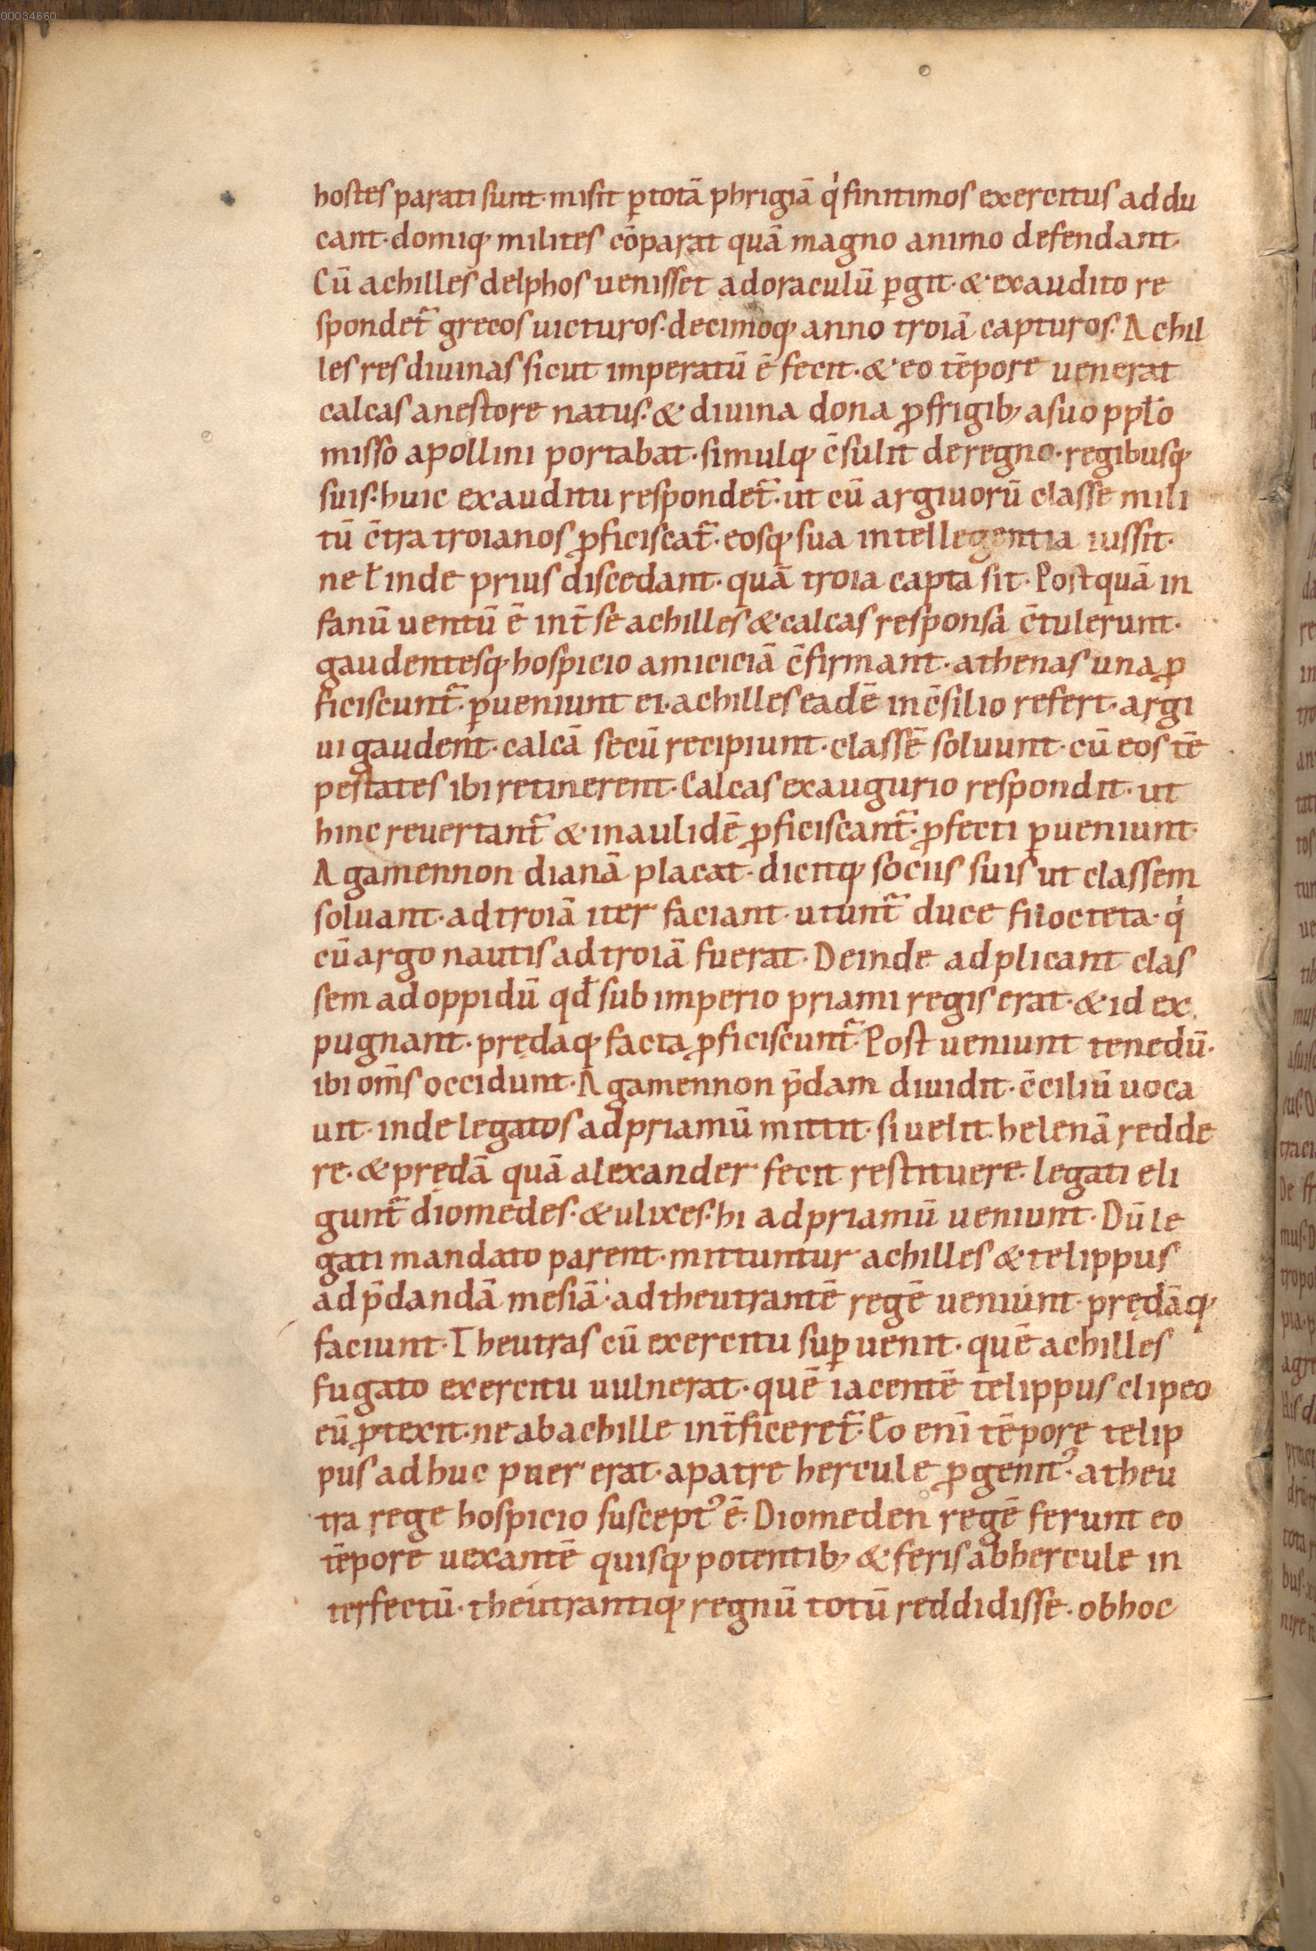 00034660
hostes parati sunt· misit ꝑ totā phrigiā q̇ finitimos exercitus addu
cant· domiq; milites cōparat quā magno animo defendant·
Cū achilles delphos uenisset ad oraculū ꝑgit· & exaudito re
spondet᷑ grecos uicturos· decimoq; anno troiā capturos· Achil
les res diuinas sicut imperatū ē fecit· & eo tēpore uenerat
calcas a nestore natus· & diuina dona ꝓ frigib; a suo ppło
misso apollini portabat· simulq; c̄sulit de regno· regibusq;
suis· huic exauditu respondet᷑· ut cū argiuorū classe mili
tū c̄tra troianos ꝓficiscat᷑· eosq; sua intellegentia iussit·
ne ł inde prius discedant· quā troia capta sit· Postquā in
fanū uentū ē int̄ se achilles & calcas responsa c̄tulerunt·
gaudentesq; hospicio amiciciā c̄firmant· athenas una ꝓ
ficiscunt᷑· ꝑueniunt ei· achilles eadē in c̄silio refert· argi
ui gaudent· calcā secū recipiunt· classē soluunt· cū eos tē
pestates ibi retinerent· Calcas ex augurio respondit· ut
hinc reuertant᷑ & in aulidē ꝓficiscant᷑· ꝓfecti ꝑueniunt·
Agamennon dianā placat· dicitq; sociis suis ut classem
soluant· ad troiā iter faciant· utunt᷑ duce filocteta· q̇
cū argonautis ad troiā fuerat· Deinde adplicant clas
sem ad oppidū qđ sub imperio priami regis erat· & id ex
pugnant· prędaq; facta ꝓficiscunt᷑· Post ueniunt tenedū·
ibi om̄s occidunt· Agamennon p̄dam diuidit· c̄ciliū uoca
uit· inde legatos ad priamū mittit· si uelit helenā redde
re· & prędā quā alexander fecit restituere· legati eli
gunt᷑ diomedes· & ulixes· hi ad priamū ueniunt· Dū le
gati mandato parent· mittuntur achilles & telippus
ad p̄dandā mesiā· ad theutrantē regē ueniunt· prędāq;
faciunt· Theutras cū exercitu suꝑuenit· quē achilles
fugato exercitu uulnerat· quē iacentē telippus clipeo
eū ꝓtexit· ne ab achille int̄ficeret᷑· Eo enī tēpore telip
pus adhuc puer erat· a patre hercule ꝓgenit᷒· a theu
tra rege hospicio suscept᷒ ē· Diomeden regē ferunt eo
tēpore uexantē quisq; potentib; & feris abhercule in
terfectū· theutrantiq; regnū totū reddidisse· ob hoc